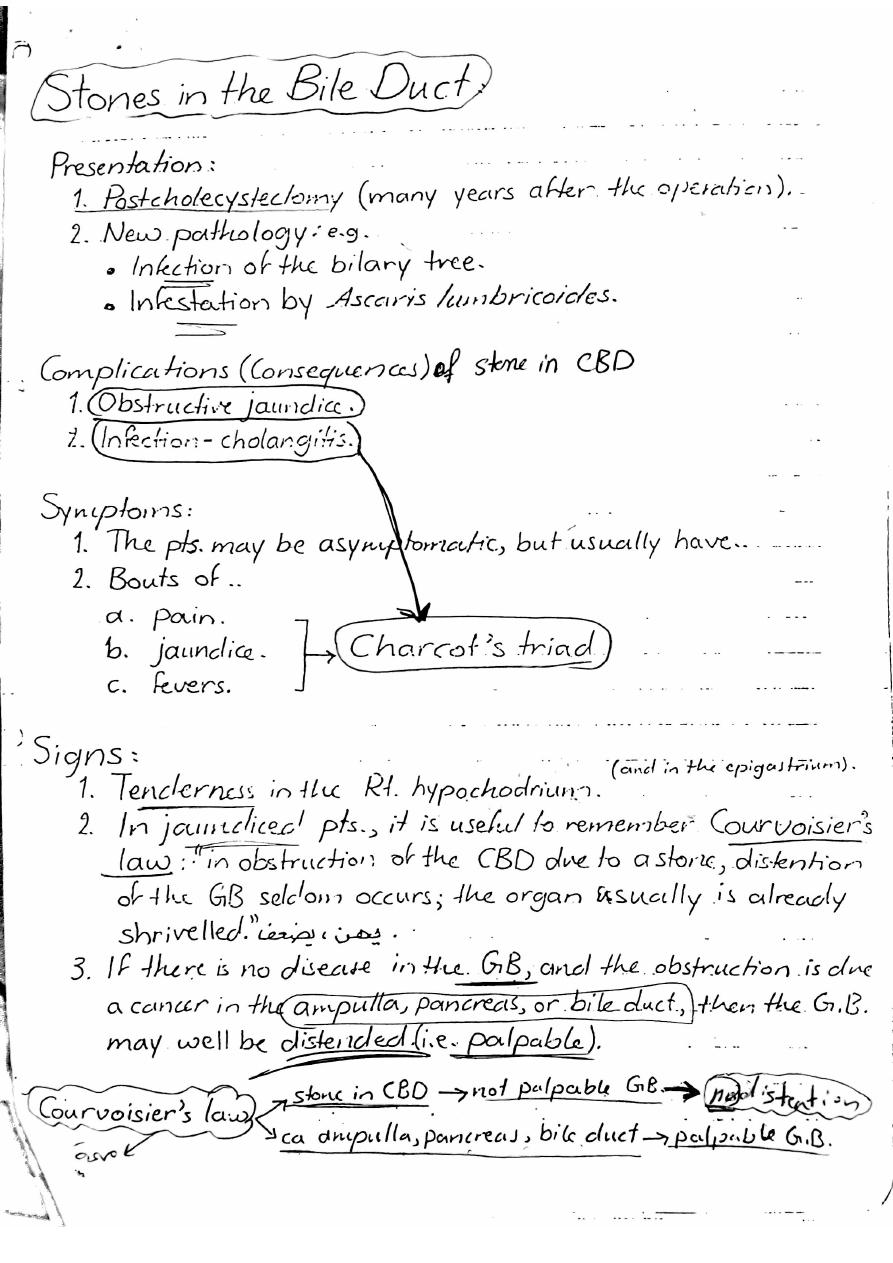 Stones in the Bile Duct
Presentation:
1. Postcholecystectomy (many years after the operation).
2. New pathology: e.g.
• Infection of the bilary tree.
• Infestation by Ascaris lumbricoides.
Complications (Consequences) of stone in CBD
1. Obstructive jaundice.
2. Infection - cholangitis.
Symptoms:
1. The pts. may be asymptomatic, but usually have..
2. Bouts of ..
a. pain.
b. jaundice.
c. fevers.
Charcot's triad
Signs:
(and in the epigastrium).
1. Tenderness in the Rt. hypochodrium.
2. In jaundiced pts., it is useful to remember Courvoisier's
law: "in obstruction of the CBD due to a stone, distention
of the GB seldom occurs; the organ usually is already
shrivelled."
3. If there is no disease in the GB, and the obstruction is due
a cancer in the ampulla, pancreas, or bile duct, then the G.B.
may well be distended (i.e. palpable).
Courvoisier's law
stone in CBD → not palpable GB → no distention
ca ampulla, pancreas, bile duct → palpable G.B.